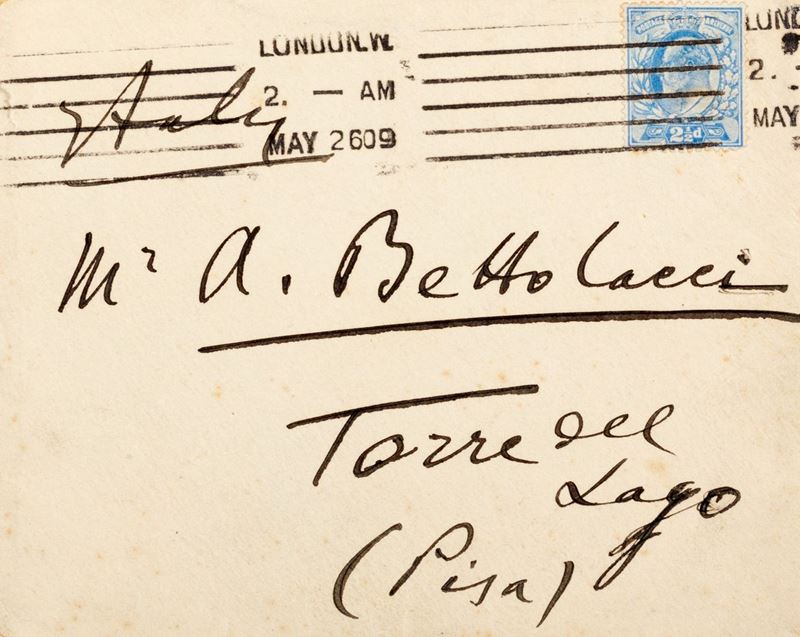 LONDON.W.
2. — AM
MAY 26 09
LOND
2.
MAY
POSTAGE
2½d
Italy
Mr A. Bettolacci
Torre del
Lago
(Pisa)